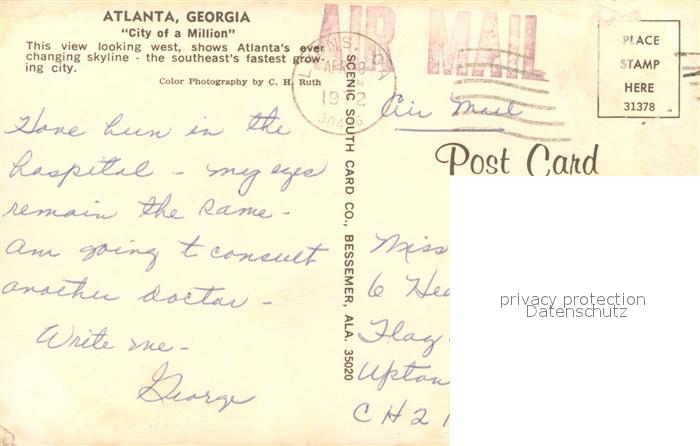 ATLANTA, GEORGIA
"City of a Million"
This view looking west, shows Atlanta's ever
changing skyline - the southeast's fastest grow-
ing city.
Color Photography by C. H. Ruth
Have been in the
hospital - my eyes
remain the same -
am going t consult
another doctor -
Write me -
George
SCENIC SOUTH CARD CO., BESSEMER, ALA. 35020
AIR MAIL
APR 8
1972
Air Mail
PLACE
STAMP
HERE
31378
Post Card
Miss
6 Hea
Flag
Upton
CH2 1
privacy protection
Datenschutz